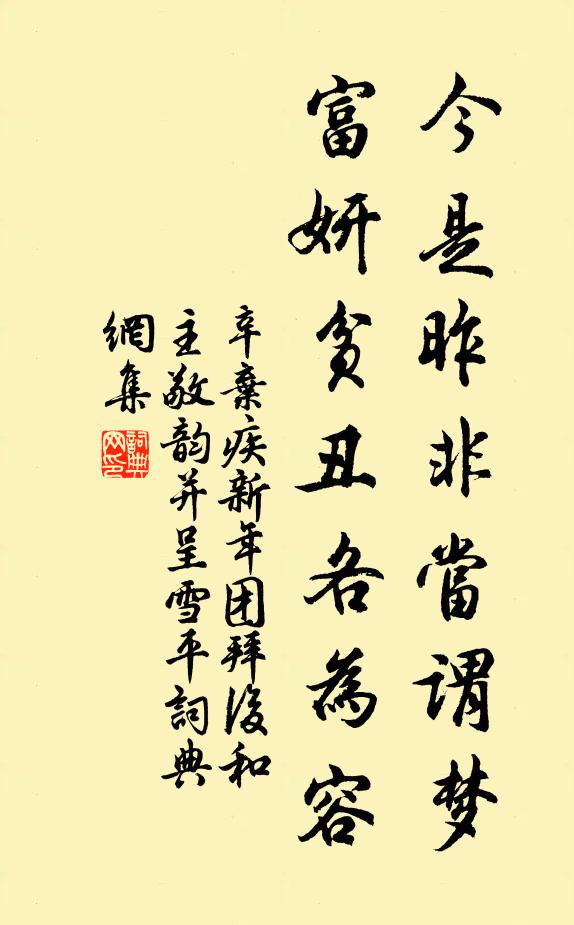 今是昨非當谓梦
富妍贫丑各為容
辛棄疾新年团拜後和
主敬韵并呈雪平詞典
網集
詞典
网印